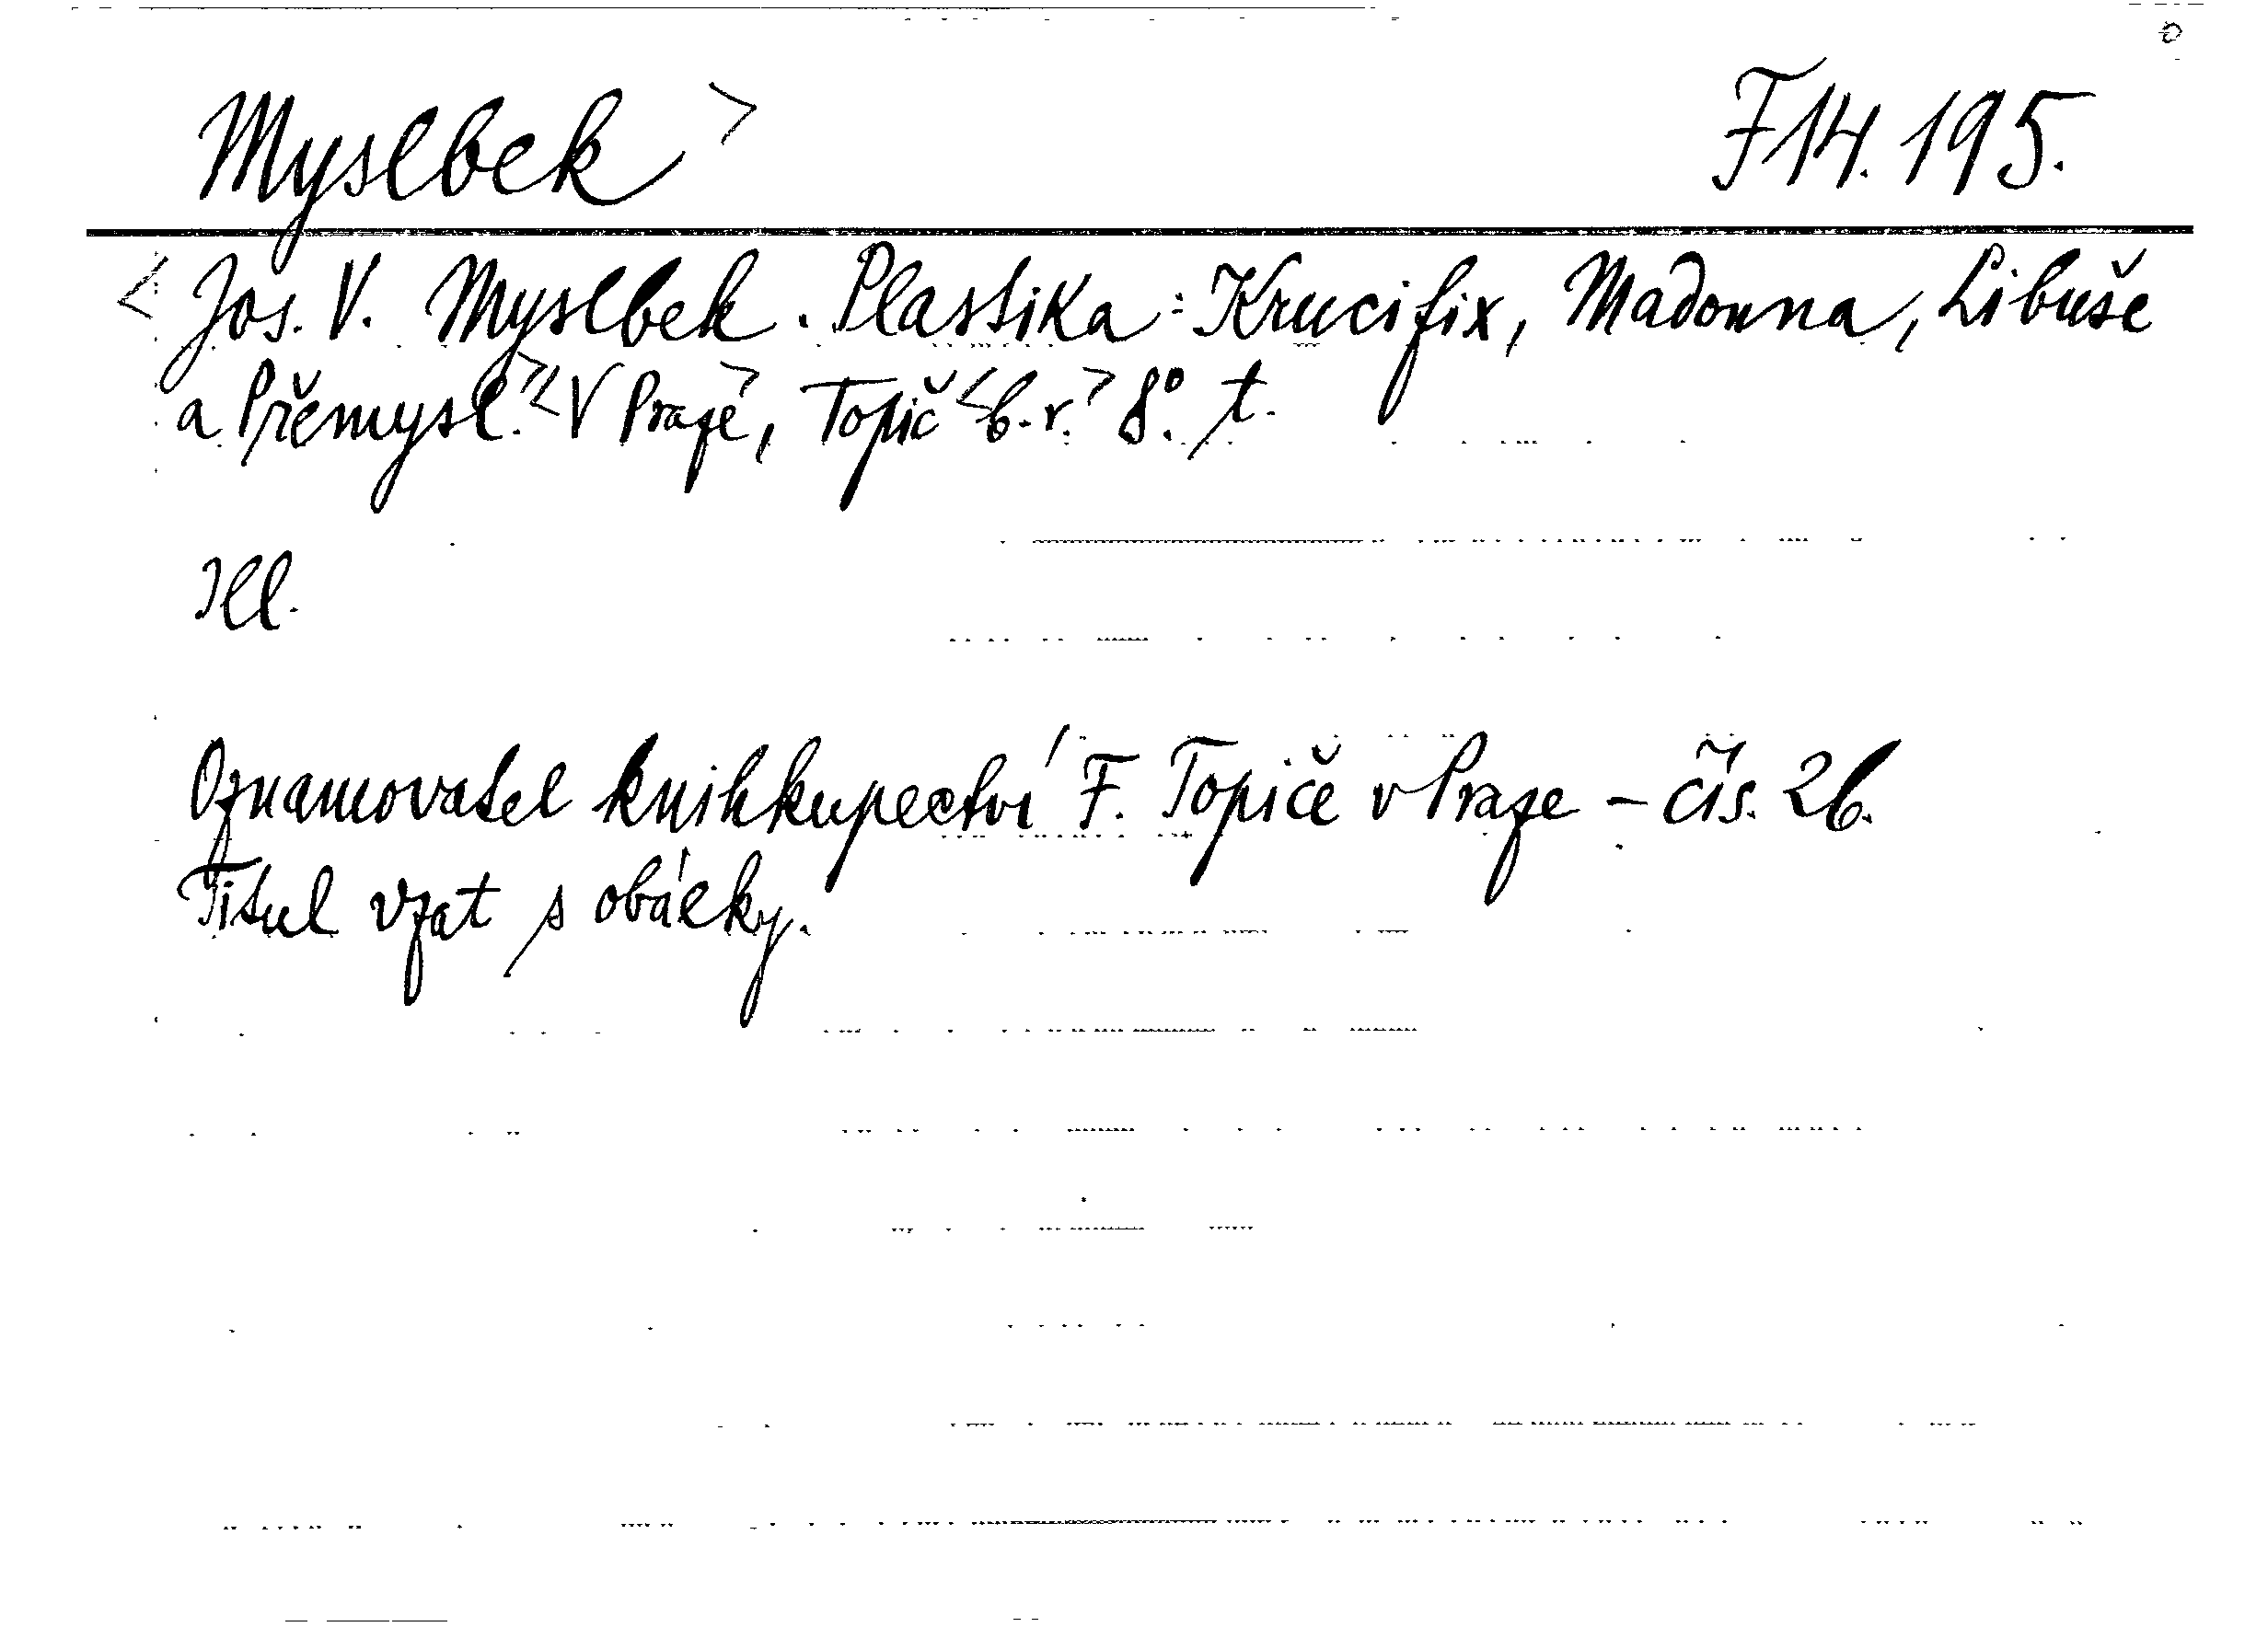 Myslbek > F 14. 195.
< Jos. V. Myslbek. Plastika: Krucifix, Madonna, Libuše
a Přemysl. > < V Praze >, Topič < b. r. > 8°. t.
Ill.
Oznamovatel knihkupectví F. Topiče v Praze – čís. 26.
Titul vzat s obálky.